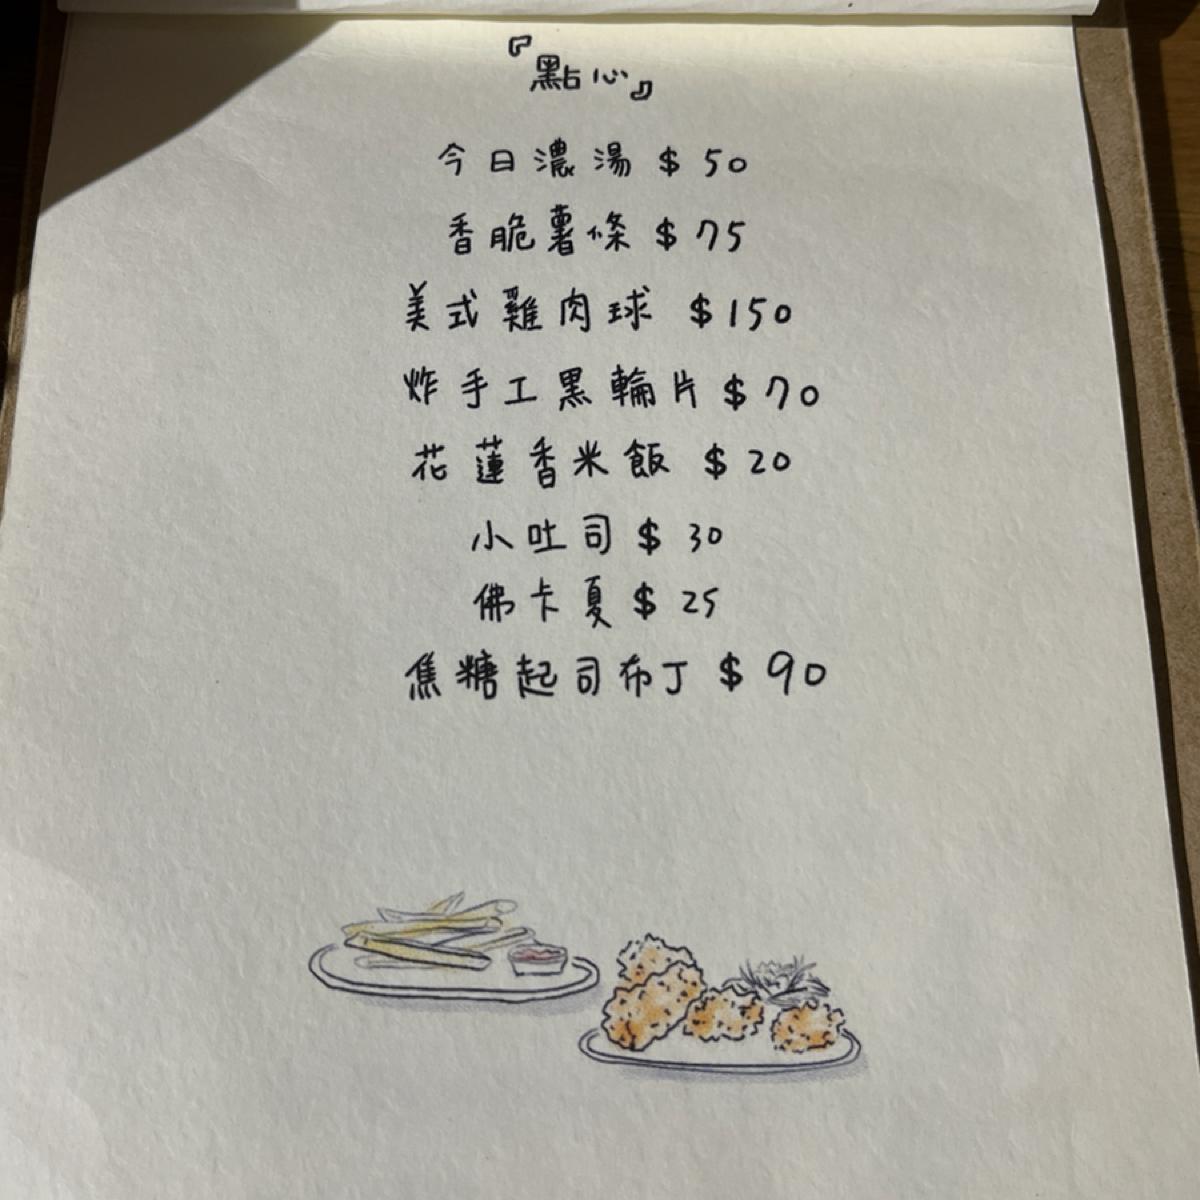 『點心』
今日濃湯 $ 50
香脆薯條 $ 75
美式雞肉球 $150
炸手工黑輪片 $ 70
花蓮香米飯 $ 20
小吐司 $ 30
佛卡夏 $ 25
焦糖起司布丁 $ 90